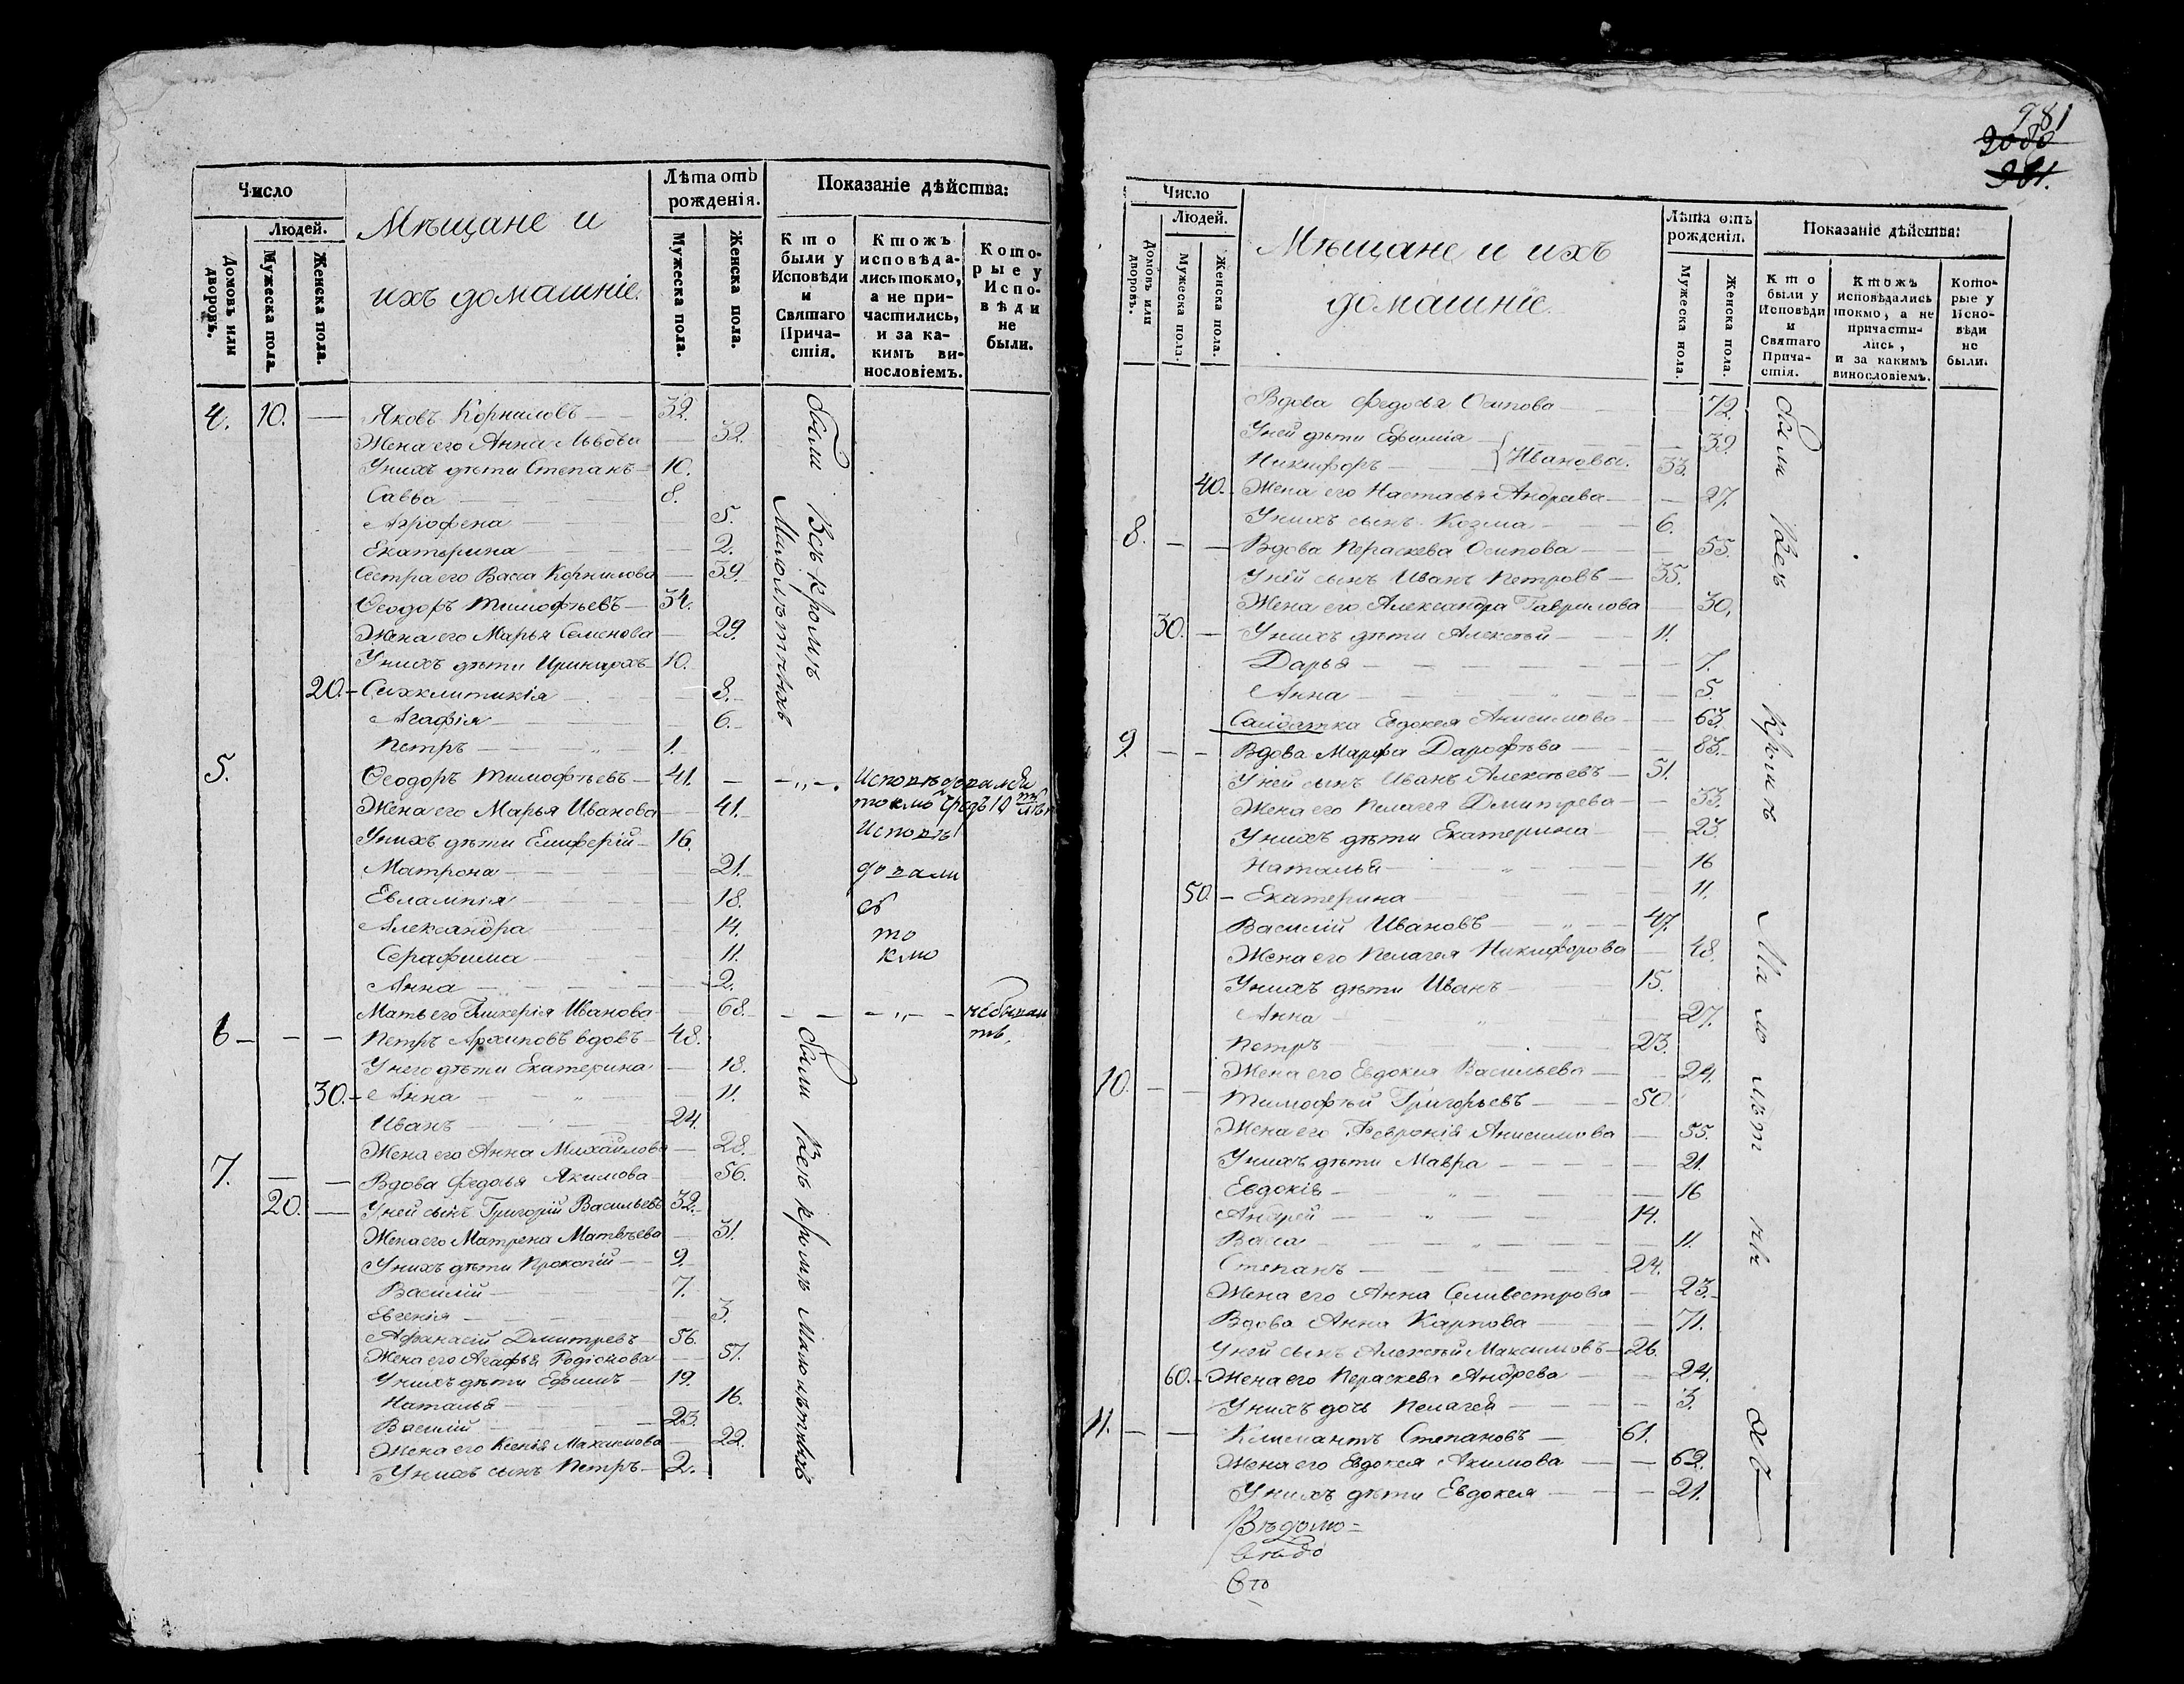 Число
Людей.
Домовъ или дворовъ.
Мужеска пола.
Женска пола.
Мѣщане и
ихъ домашніе.
Лѣта отъ рожденія.
Мужеска пола.
Женска пола.
Показаніе дѣйства:
Кто были у Исповѣди и Святаго Причастія.
Ктожъ исповѣдались токмо, а не причастились, и за какимъ винословіемъ.
Которые у Исповѣди не были.
4. 10. — Яковъ Корниловъ — 32.
Жена его Анна Львова — 32.
У нихъ дѣти Степанъ — 10.
Савва — 8.
Агрофена — 5.
Екатерина — 2.
Сестра его Васса Корнилова — 39.
Ѳеодоръ Тимофѣевъ — 34.
Жена его Марья Семенова — 29.
У нихъ дѣти Иринархъ — 10.
20. — Сихклитикія — 8.
Агафія — 6.
Петръ — 1.
были Всѣ кромѣ Малолѣтныхъ
5. Ѳеодоръ Тимофѣевъ — 41. — „ —
Жена его Марья Иванова — 41.
У нихъ дѣти Елиферій — 16.
Матрона — 21.
Евлампія — 18.
Александра — 14.
Серафима — 11.
Анна — 2.
Исповѣдовались
токмо
Исповѣ
довали
сь
то
кмо
Мать его Гликерія Иванова — 68. — „ —
6 — Петръ Архиповъ вдовъ — 48.
У него дѣти Екатерина — 18.
30. — Анна — 11.
Иванъ — 24.
Жена его Анна Михайлова — 28.
7. — Вдова Федосья Якимова — 56.
20. — У ней сынъ Григорій Васильевъ 32.
Жена его Матрена Матвѣева — 31.
У нихъ дѣти Прокопій — 9.
Василій — 7.
Евгенія — 3.
Афанасій Дмитревъ — 56.
Жена его Агафья Родіонова — 57.
У нихъ дѣти Ефимъ — 19.
Наталья — 16.
Василій — 23.
Жена его Ксенія Максимова — 22.
У нихъ сынъ Петръ — 2.
были Всѣ кромѣ Малолѣтныхъ
981
2080
981.
Число
Людей.
Домовъ или дворовъ.
Мужеска пола.
Женска пола.
Мѣщане и ихъ
домашніе.
Лѣта отъ рожденія.
Мужеска пола.
Женска пола.
Показаніе дѣйства:
Кто были у Исповѣди и Святаго Причастія.
Ктожъ исповѣдались токмо, а не причастились, и за какимъ винословіемъ.
Которые у Исповѣди не были.
Вдова Федосья Осипова — 72.
У ней дѣти Ефимія — 39.
Никифоръ — Ивановы. 33.
40. — Жена его Настасья Андрева — 27.
У нихъ сынъ Козма — 6.
8. — — Вдова Пераскева Осипова — 55.
У ней сынъ Иванъ Петровъ — 35.
Жена его Александра Гаврилова — 30.
30. — У нихъ дѣти Алексѣй — 11.
Дарья — 7.
Анна — 5.
Салдатка Евдокея Анисимова — 63.
9. — — Вдова Марфа Дарофѣва — 83.
У ней сынъ Иванъ Алексѣевъ — 51.
Жена его Пелагея Дмитрева — 53.
У нихъ дѣти Екатерина — 23.
Наталья — 16
50. — Екатерина — 11.
Василій Ивановъ — 47.
Жена его Пелагея Никифорова — 48.
У нихъ дѣти Иванъ — 15.
Анна — 27.
Петръ — 23.
Жена его Евдокея Васильева — 24.
10. — — Тимофѣй Григорьевъ — 50.
Жена его Февронія Анисимова — 55.
У нихъ дѣти Мавра — 21.
Евдокія — 16
Андрей — 14.
Васса — 11.
Степанъ — 24.
Жена его Анна Селивестрова — 23.
Вдова Анна Карпова — 71.
У ней сынъ Алексѣй Максимовъ — 26.
60. — Жена его Пераскева Андрева — 24.
У нихъ дочь Пелагея — 3.
11. — — Климантъ Степановъ — 61.
Жена его Евдокея Акимова — 62.
У нихъ дѣти Евдокея — 21.
были Всѣ кромѣ Мало лѣт ны хъ
Вѣдомо=